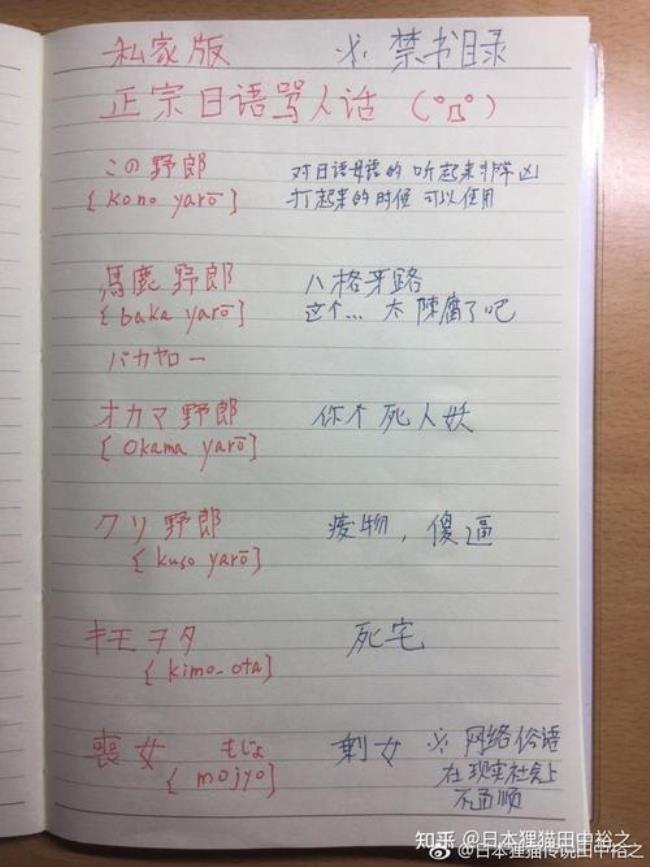 私家版 ※ 禁书目录
正宗日语骂人话 (°Д°)
この野郎 对日语母语的 听起来非常凶
{ kono yarō } 打起来的时候 可以使用
馬鹿野郎 八格牙路
{ baka yarō } 这个... 太 陳腐了吧
バカヤロー
オカマ野郎 你个死人妖
{ Okama yarō }
クソ野郎 废物,傻逼
{ kuso yarō }
キモヲタ 死宅
{ kimo-ota }
喪女 もじょ 剩女 ※ 网络俗语
{ mojyo } 在现实社会上
不通顺
知乎 @日本狸猫田中裕之
@日本狸猫传说田中裕之